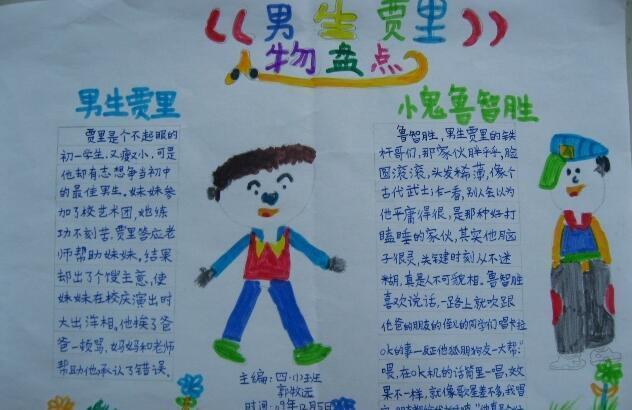 《男生贾里》
人物盘点
男生贾里
贾里是个不起眼的
初一学生,又瘦又小,可是
他却有志想争当初中
的最佳男生。妹妹参
加了校艺术团,她练
功不刻苦,贾里答应老
师帮助妹妹,结果
却出了个馊主意,使
妹妹在校庆演出时
大出洋相。他挨了爸
爸一顿骂,妈妈和老师
帮助他,承认了错误。
小鬼鲁智胜
鲁智胜,男生贾里的铁
杆哥们,那家伙胖乎乎,脸
圆滚滚,头发稀薄,像个
古代武士,乍一看,别人会以为
他平庸得很,是那种好打
瞌睡的家伙,其实他脑
子很灵,关键时刻从不迷
糊,真是人不可貌相。鲁智胜
喜欢说话,一路上就吹跟
他爸的朋友的侄儿的同学们唱卡拉
ok的事—反正他狐朋狗友一大帮:“
喂,在ok机的话筒里一唱,效
果不一样,就像歌星差不多,我唱
主编:四(1)班
郭牧远
时间:09年12月5日